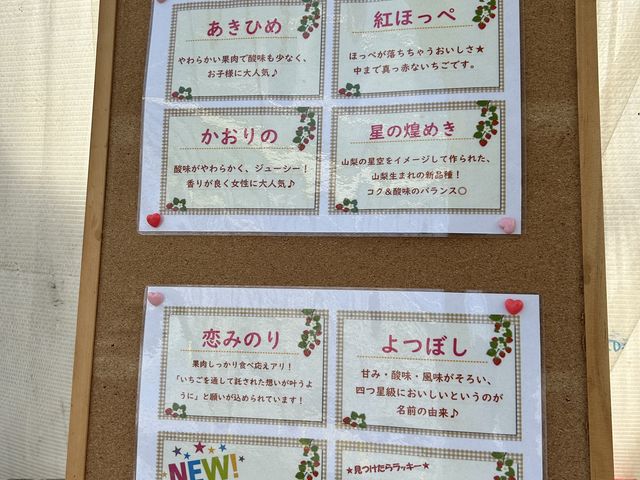 あきひめ
やわらかい果肉で酸味も少なく、
お子様に大人気♪
紅ほっぺ
ほっぺが落ちちゃうおいしさ★
中まで真っ赤ないちごです。
かおりの
酸味がやわらかく、ジューシー！
香りが良く女性に大人気♪
星の煌めき
山梨の星空をイメージして作られた、
山梨生まれの新品種！
コク＆酸味のバランス〇
恋みのり
果肉しっかり食べ応えアリ！
「いちごを通して託された想いが叶うよ
うに」と願いが込められています！
よつぼし
甘み・酸味・風味がそろい、
四つ星級においしいというのが
名前の由来♪
NEW!
★見つけたらラッキー★